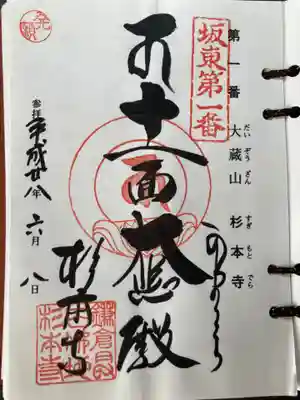 第一番 大蔵山 杉本寺
だいぞうざん すぎもとでら
坂東第一番
十一面大悲殿
杉本寺
発願
参拝 平成廿八年 六月 八日